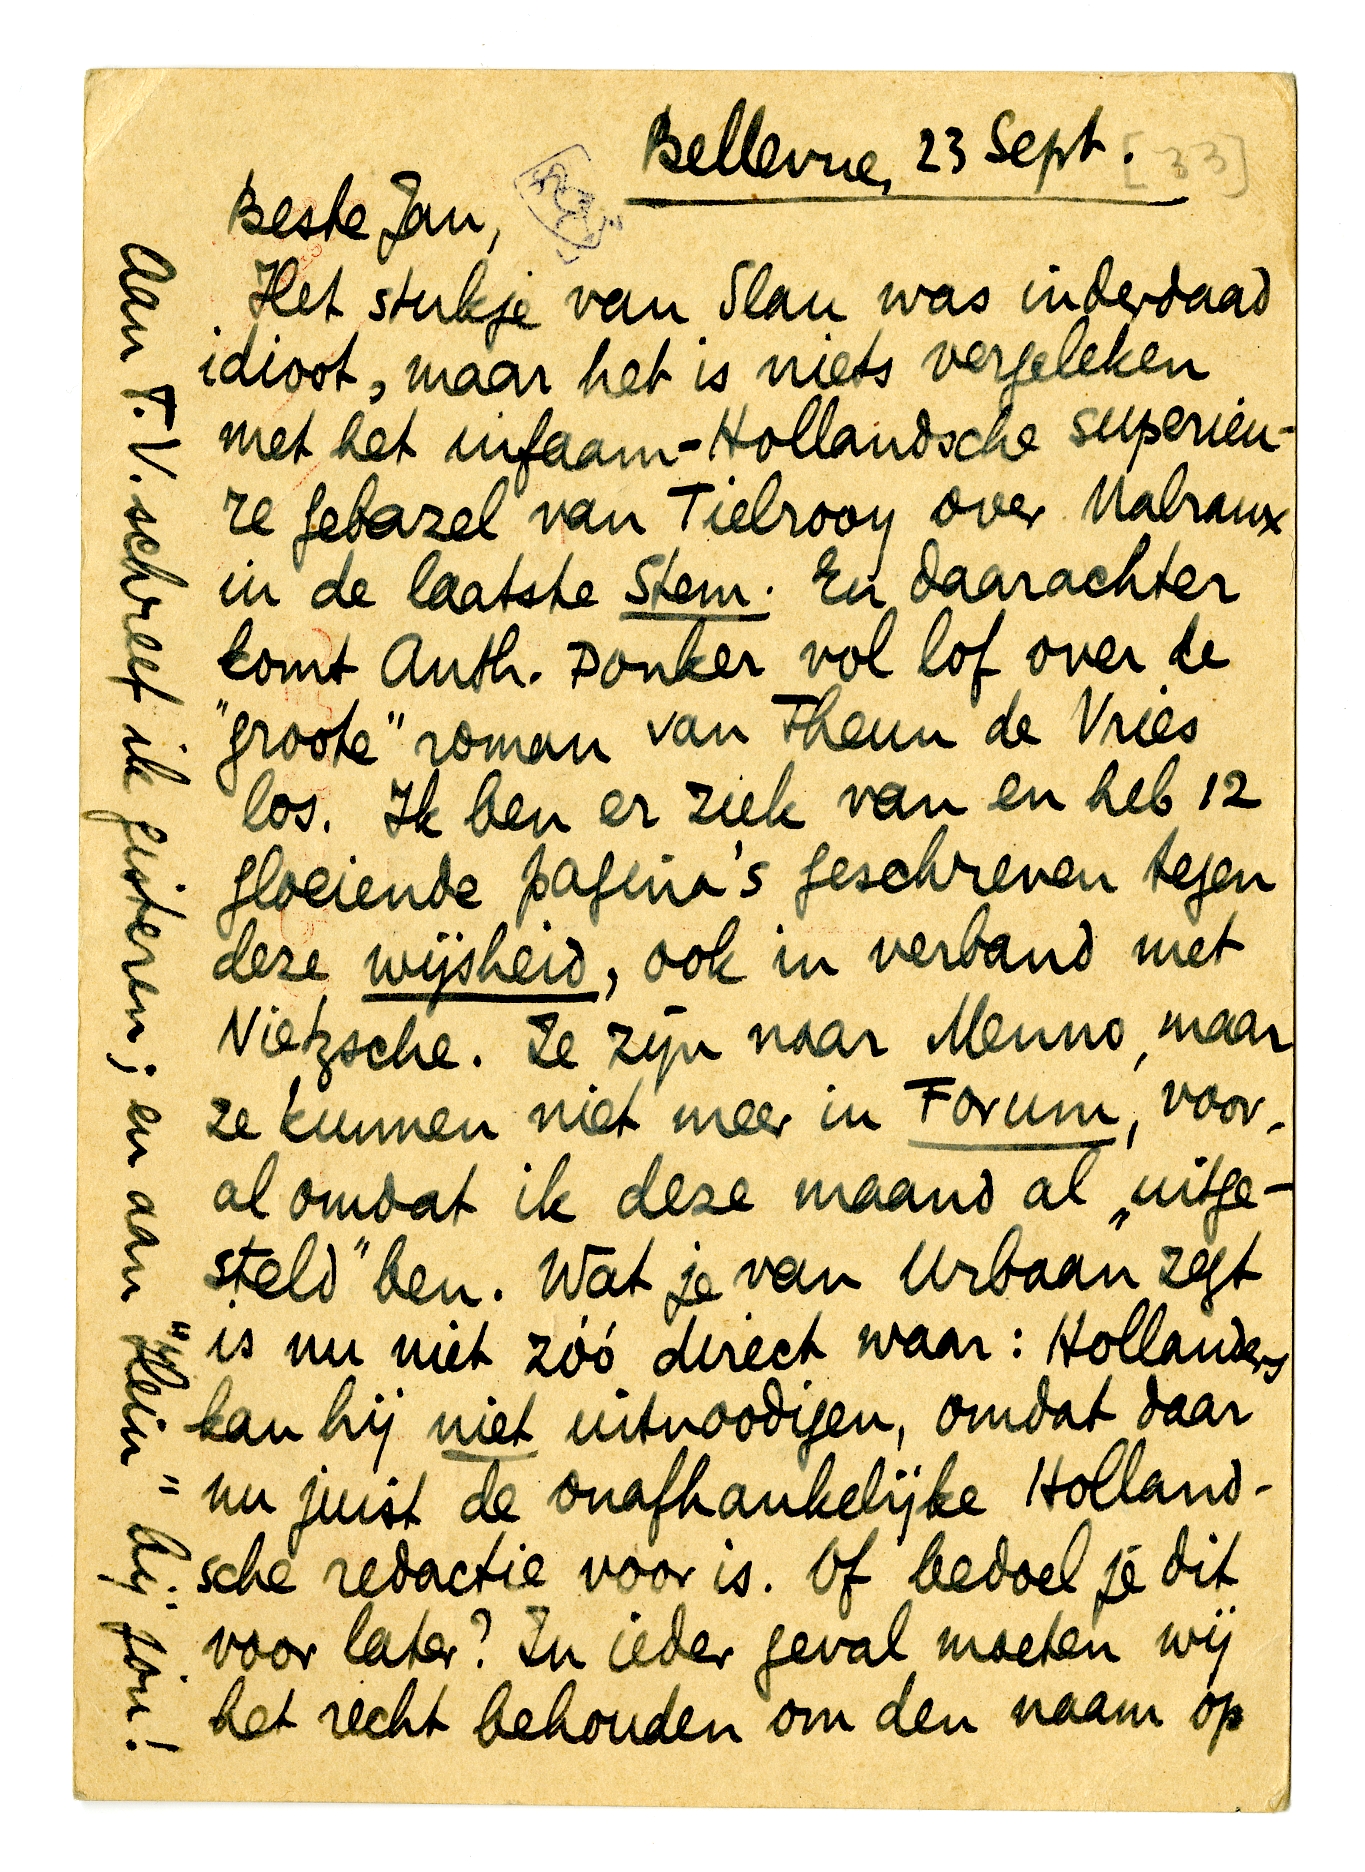 Bellevue, 23 Sept. [33]
Beste Jan,
Het stukje van Slau was inderdaad
idioot, maar het is niets vergeleken
met het infaam-Hollandsche superieu-
re gebazel van Tielrooy over Malraux
in de laatste Stem. En daarachter
komt Anth. Donker vol lof over de
"groote" roman van Theun de Vries
los. Ik ben er ziek van en heb 12
gloeiende pagina's geschreven tegen
deze wijsheid, ook in verband met
Nietzsche. Ze zijn naar Menno, maar
ze kunnen niet meer in Forum, voor-
al omdat ik deze maand al „uitge-
steld" ben. Wat je van Urbaan zegt
is nu niet zóó direct waar: Hollanders
kan hij niet uitnoodigen, omdat daar
nu juist de onafhankelijke Holland-
sche redactie voor is. Of bedoel je dit
voor later? In ieder geval moeten wij
het recht behouden om den naam op
Aan F.V. schreef ik gisteren; en aan "Hein" bij jou!